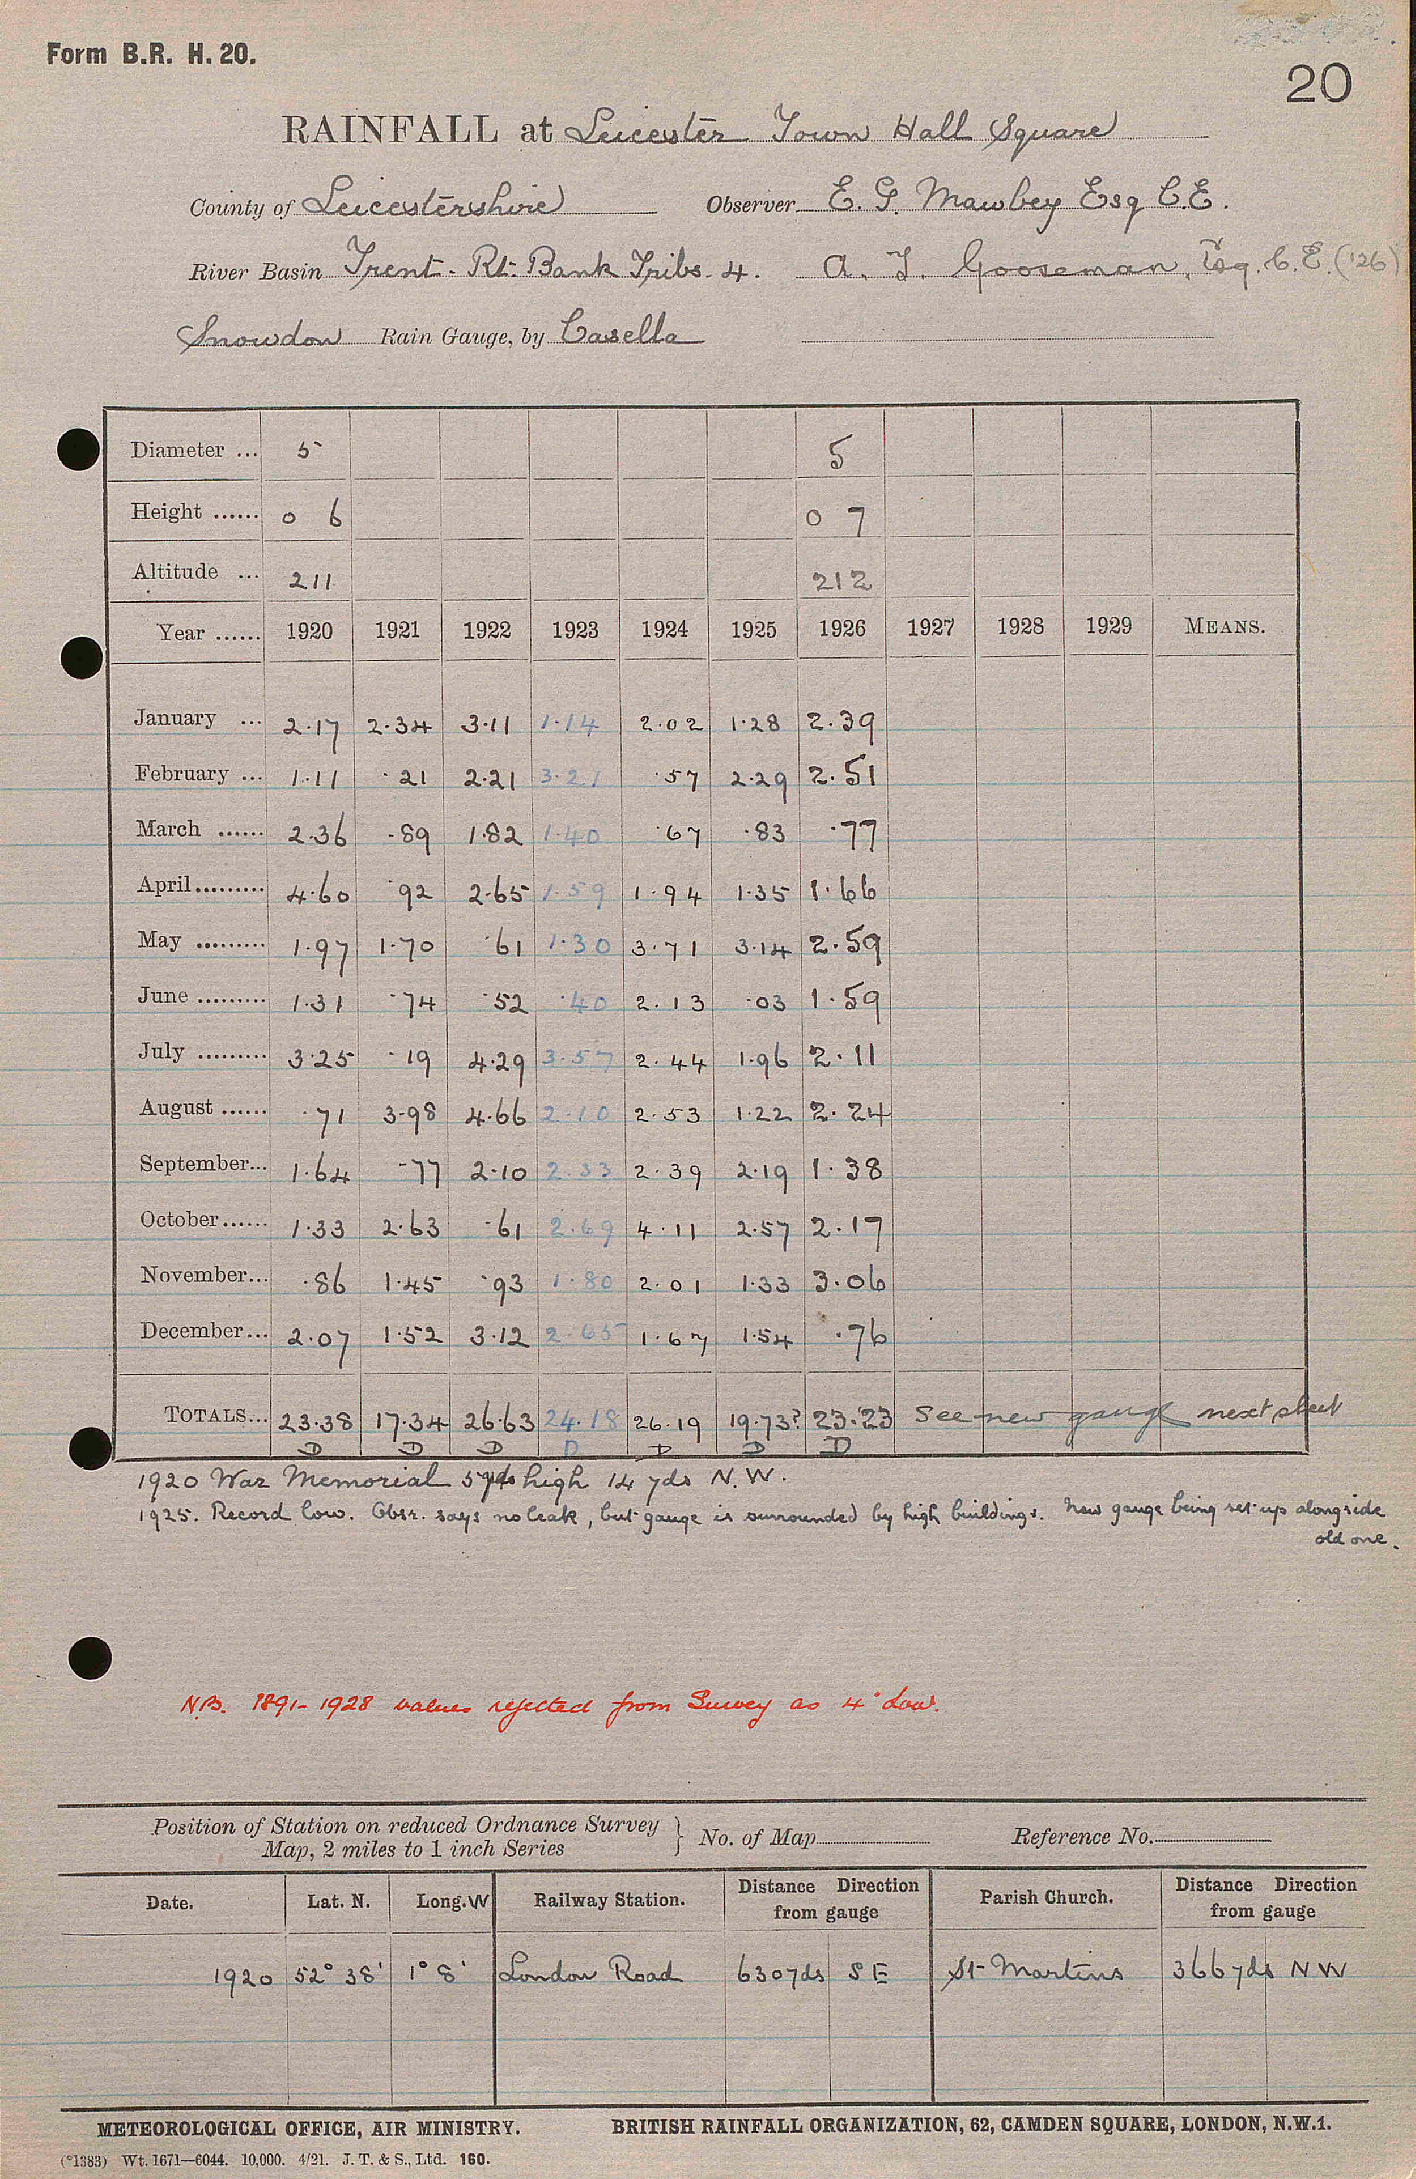 Form B.R. H. 20.
20
RAINFALL at Leicester Town Hall Square
County of Leicestershire Observer E. G. Mawbey Esq C.E.
River Basin Trent. Rt. Bank Tribs. 4. A. T. Gooseman, Esq. C.E. ('26)
Snowdon Rain Gauge, by Casella
Diameter ... 5 5
Height ...... 0 6 0 7
Altitude ... 211 212
Year ...... 1920 1921 1922 1923 1924 1925 1926 1927 1928 1929 MEANS.
January ... 2.17 2.34 3.11 1.14 2.02 1.28 2.39
February ... 1.11 .21 2.21 3.21 .57 2.29 2.51
March ...... 2.36 .89 1.82 1.40 .67 .83 .77
April......... 4.60 .92 2.65 1.59 1.94 1.35 1.66
May ......... 1.97 1.70 .61 1.30 3.71 3.14 2.59
June ......... 1.31 .74 .52 .40 2.13 .03 1.59
July ......... 3.25 .19 4.29 3.57 2.44 1.96 2.11
August ...... .71 3.98 4.66 2.10 2.53 1.22 2.24
September... 1.64 .77 2.10 2.33 2.39 2.19 1.38
October...... 1.33 2.63 .61 2.69 4.11 2.57 2.17
November... .86 1.45 .93 1.80 2.01 1.33 3.06
December... 2.07 1.52 3.12 2.65 1.67 1.54 .76
TOTALS... 23.38 17.34 26.63 24.18 26.19 19.73? 23.23 See new gauge next sheet
D D D D D D D
1920 War Memorial 5yds high 14 yds N.W.
1925. Record low. Obsr. says no leak, but gauge is surrounded by high buildings. New gauge being set up alongside
old one.
N.B. 1891-1928 values rejected from Survey as 4" Low.
Position of Station on reduced Ordnance Survey
Map, 2 miles to 1 inch Series } No. of Map Reference No.
Date. Lat. N. Long. W Railway Station. Distance Direction from gauge Parish Church. Distance Direction from gauge
1920 52° 38' 1° 8' London Road 630yds S E St Martins 366yds N W
METEOROLOGICAL OFFICE, AIR MINISTRY. BRITISH RAINFALL ORGANIZATION, 62, CAMDEN SQUARE, LONDON, N.W.1.
(*1383) Wt. 1671—6044. 10,000. 4/21. J. T. & S., Ltd. 160.